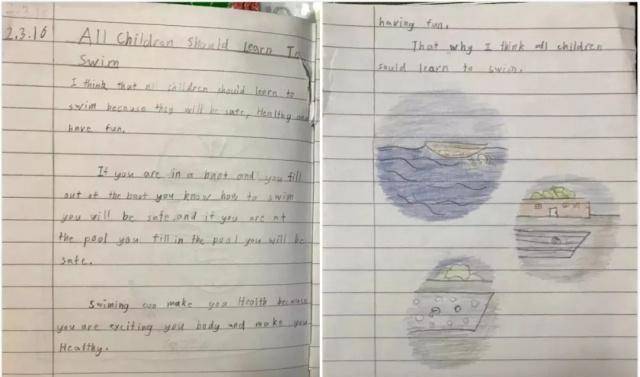 2.3.16
All Children Should Learn To
Swim
I think that all children should learn to
swim because they will be safe, Healthy and
have fun.
If you are in a boat and you fill
out of the boat you know how to swim
you will be safe and if you are at
the pool you fill in the pool you will be
safe.
Swiming can make you Health because
you are exciting you body and make you
Healthy.
having fun.
That why I think all children
sould learn to swim.